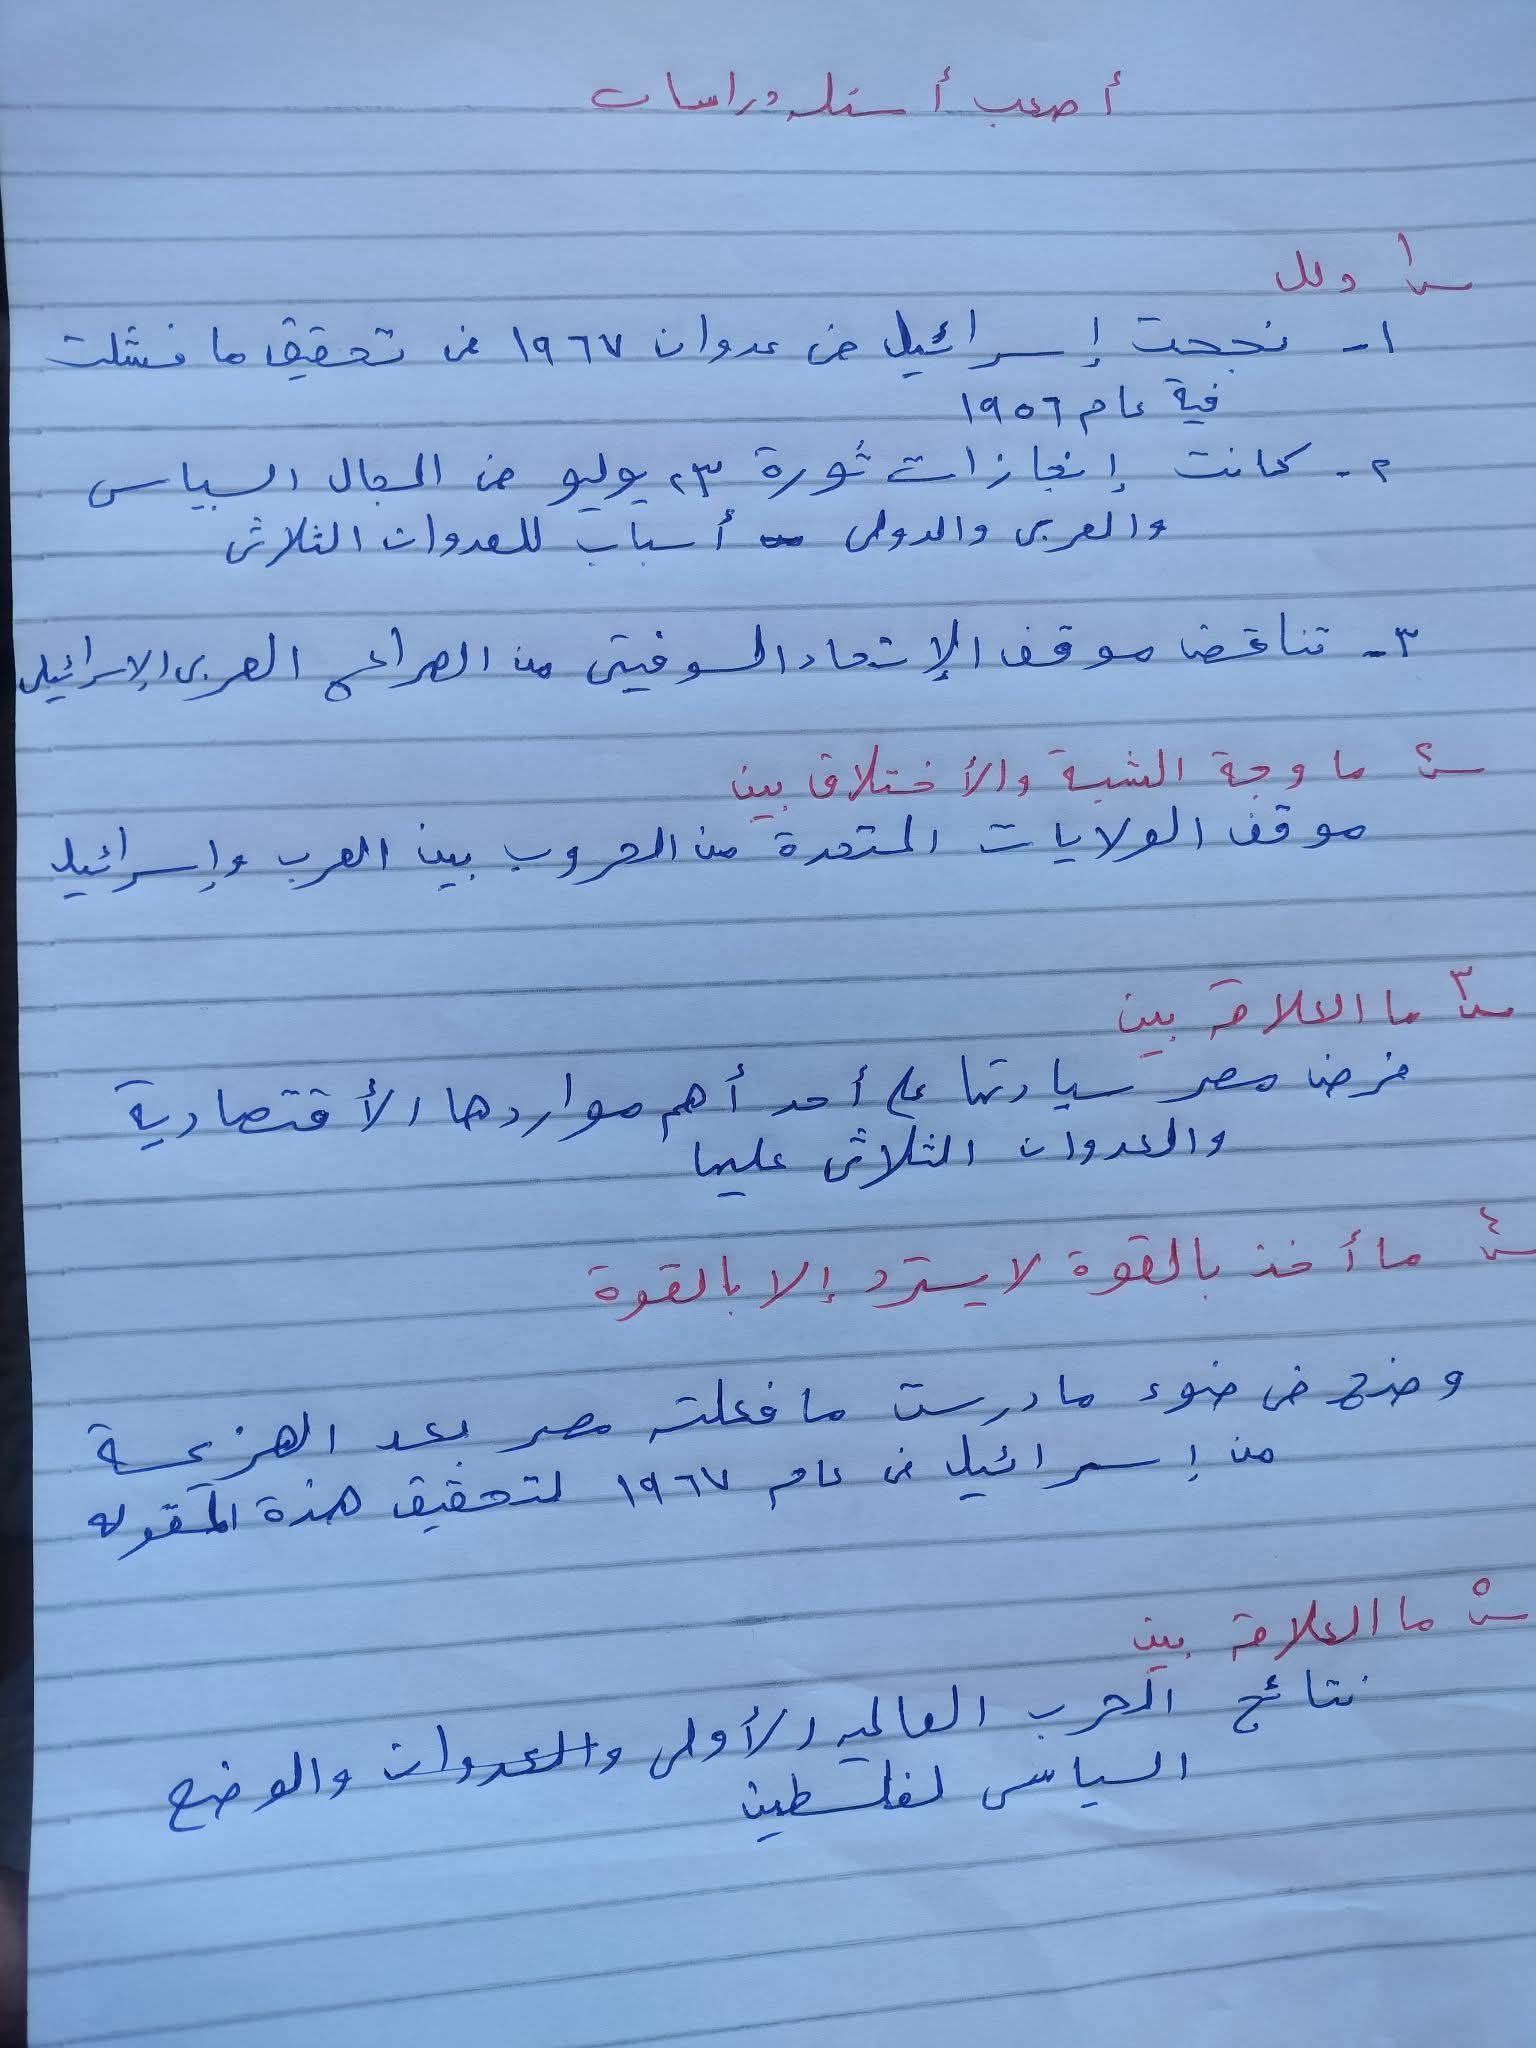 أصعب أسئلة دراسات
س١ دلل
١- نجحت إسرائيل فى عدوان ١٩٦٧ فى تحقيق ما فشلت
فية عام ١٩٥٦
٢- كانت إنجازات ثورة ٢٣ يوليو فى المجال السياسى
والعربى والدولى أسباب للعدوان الثلاثى
٣- تناقض موقف الإتحاد السوفيتى من الصراع العربى الإسرائيلى
س٢ ما وجة الشبة والأختلاف بين
موقف الولايات المتحدة من الحروب بين العرب وإسرائيل
س٣ ما العلاقة بين
فرض مصر سيادتها على أحد أهم مواردها الأقتصادية
والعدوان الثلاثى عليها
س٤ ما أخذ بالقوة لا يسترد إلا بالقوة
وضح فى ضوء ما درست ما فعلته مصر بعد الهزيمة
من إسرائيل فى عام ١٩٦٧ لتحقيق هذة المقولة
س٥ ما العلاقة بين
نتائج الحرب العالمية الأولى والعدوان والوضع
السياسى لفلسطين